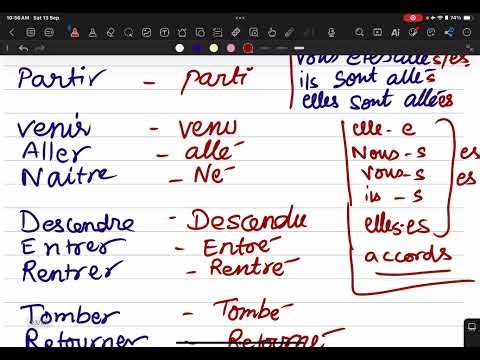 10:56 AM Sat 13 Sep
74%
vous êtes allés/es
ils sont allés
elles sont allées
Partir - parti
venir - venu
Aller - allé
Naitre - Né
Descendre - Descendu
Entrer - Entré
Rentrer - Rentré
Tomber - Tombé
Retourner - Retourné
elle - e
Nous - s es
vous - s es
ils - s
elles - es
accords